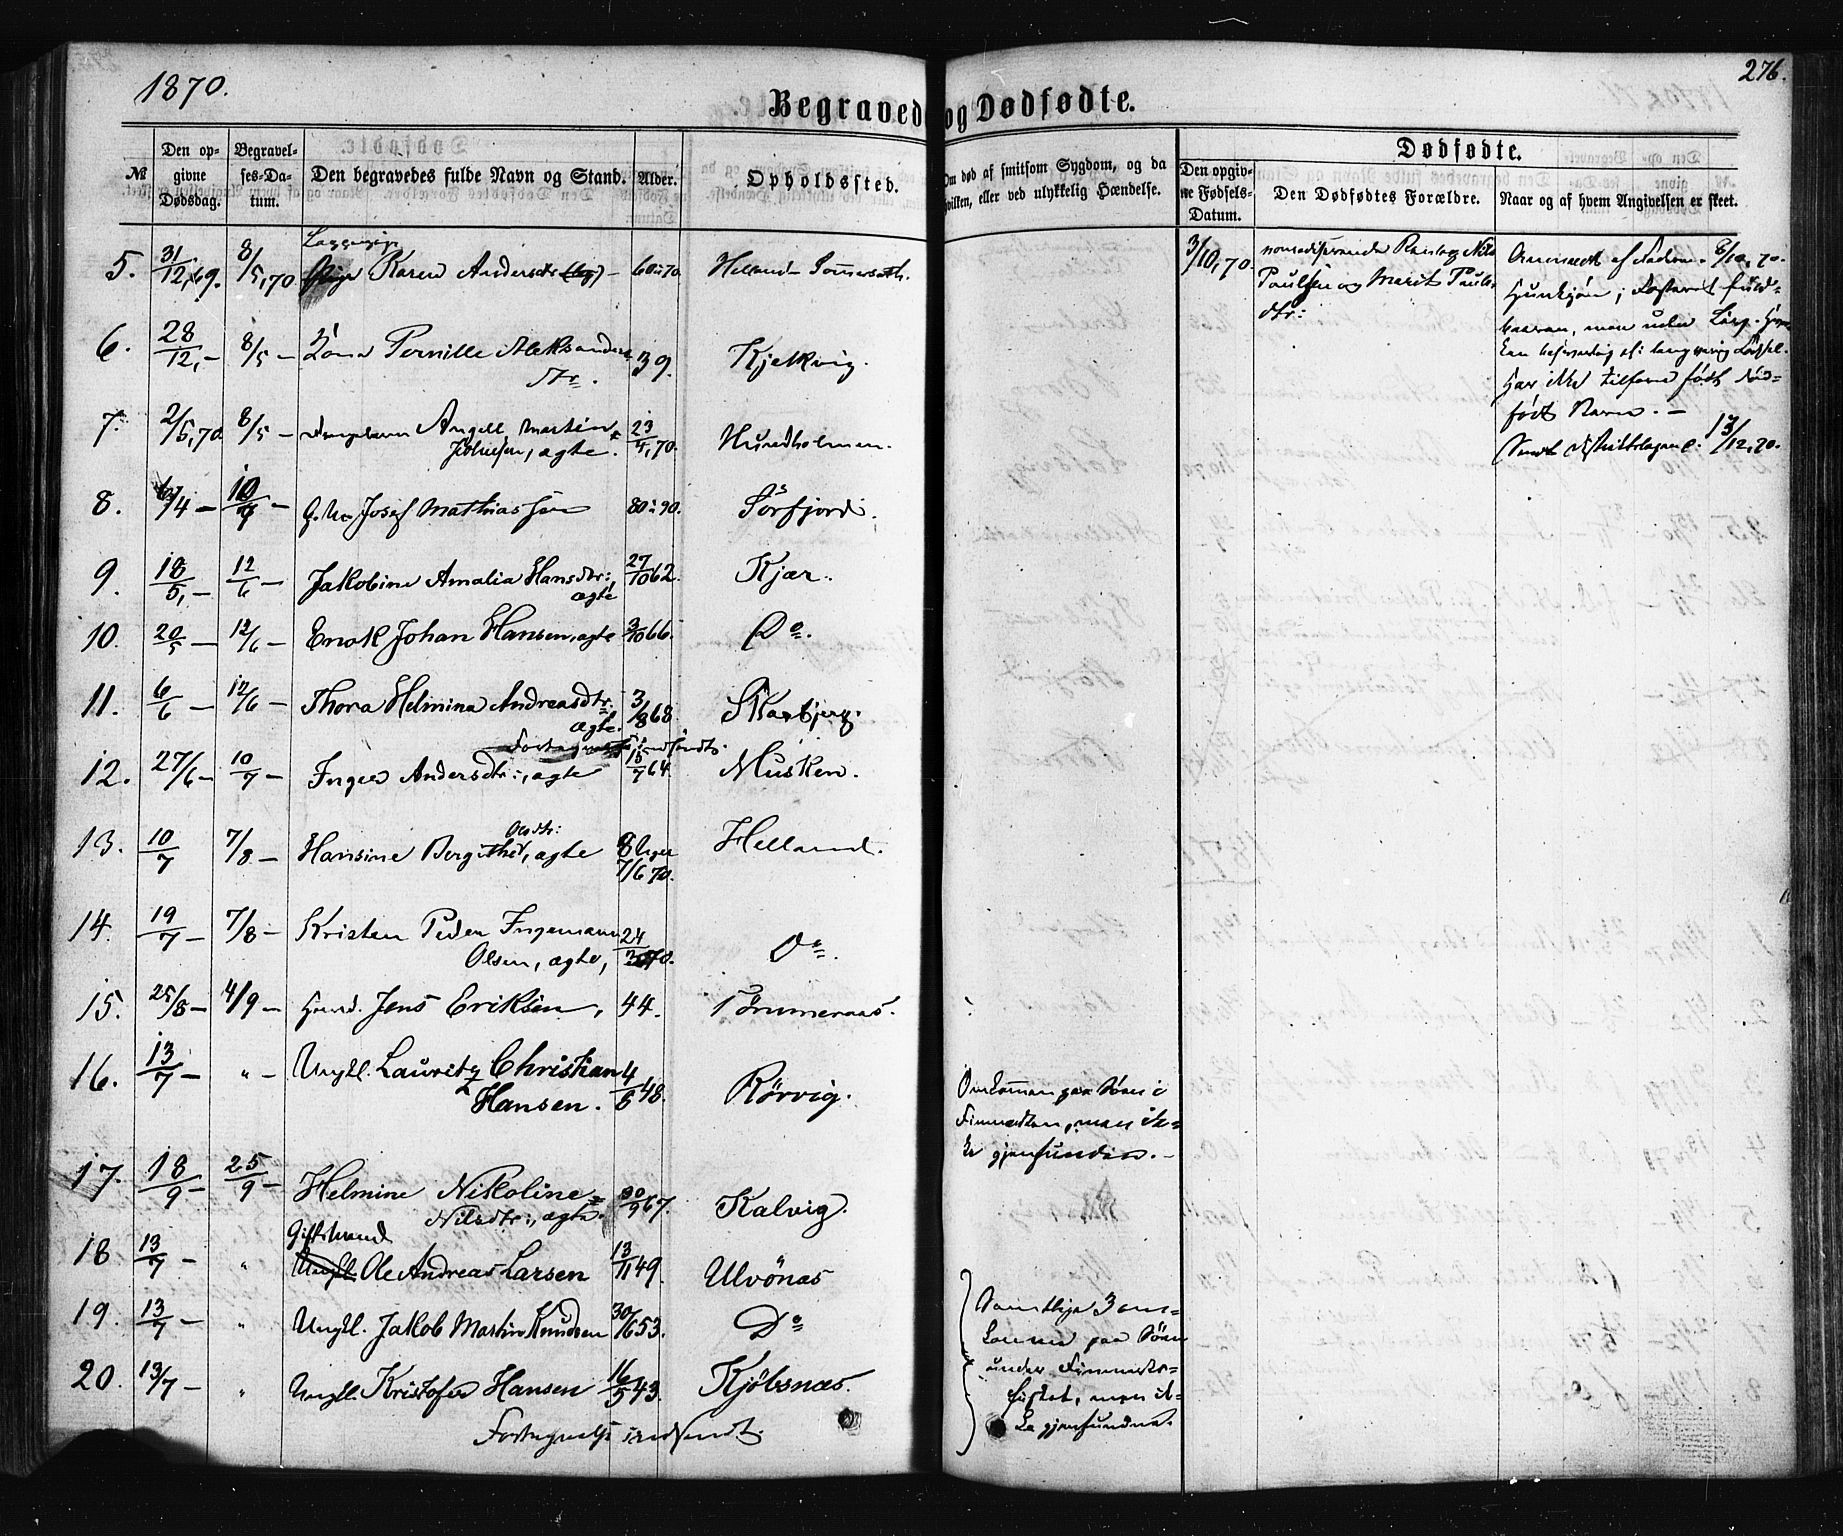 1870.
276.
Begravede og Dødfødte.
Dødfødte.
№
Den opgivne Dødsdag.
Begravelses-Datum.
Den begravedes fulde Navn og Stand.
Alder.
Opholdssted.
Om død af smitsom Sygdom, og da hvilken, eller ved ulykkelig Hændelse.
Den opgivne Fødsels-Datum.
Den Dødfødtes Forældre.
Naar og af hvem Angivelsen er skeet.
5. 31/12,69. 8/5,70 Karen Andersdtr 60-70 Helland
6. 28/12,- 8/5 - Kone Pernille Aleksanders-
dtr. 39. Kjelkvig.
7. 2/5,70 8/5 - Angell Martin
Johnsen, ægte. 23/4,70. Hundholmen.
8. /4 - 10/ - G. M. Josef Mathiassen 80-90. Sörfjord.
9. 18/5,- 12/6 - Jakobine Amalia Hansdtr:,
ægte 27/10 62. Kjær.
10. 20/5 - 12/6 - Enok Johan Hansen, ægte 3/10 66. Do.
11. 6/6 - 12/6 - Thora Helmina Andreasdtr:
ægte. 3/8 68. Skarbjerg.
Fortegnelse indsendt.
12. 27/6 - 10/7 - Inger Andersdtr:, ægte 15/7 64. Musken.
Olsdtr:
13. 10/7 7/8 - Hansine Bergithe, ægte 8 Uger
7/6 70. Helland.
14. 19/7 - 7/8 - Kristen Peder Ingemann
Olsen, ægte, 24/ 70. Do.
15. 25/8 - 4/9 - Huusm. Jens Eriksen, 44. Tömmernæs.
16. 13/7 - " - Ungkl. Lauritz Christian
Hansen. 4/6 48. Rörvig.
17. 18/9 - 25/9 - Helmine Nikoline
Nilsdtr:, ægte. 30/9 67. Kalvig.
Gift Mand
18 13/7 - " Ungkl. Ole Andreas Larsen 13/11 49. Ulvönæs
19. 13/7 - " Ungkl. Jakob Martin Knudsen 30/6 53. Do
20. 13/7 - " Ungkl. Kristofer Hansen 16/5 43. Kjöbsnæs.
Fortegnelse indsendt.
Omkommen paa Söen i
Finmarken, men ik-
ke gjenfunden. -
Samtlige 3 om-
komne paa Söen
under Finmarks-
fisket, men ik-
ke gjenfundne.
3/10,70. nomadiserende Nils
Paulsen og Marit Pauls-
dtr:
Anmeldt af Faderen 8/10,70.
Hunkjön; Fosteret fuld-
baaren, men uden Liv.
langvarig Fødsel.
Har ikke tilforn født død-
født Barn. -
Sendt Distriktslægen 13/12,70.